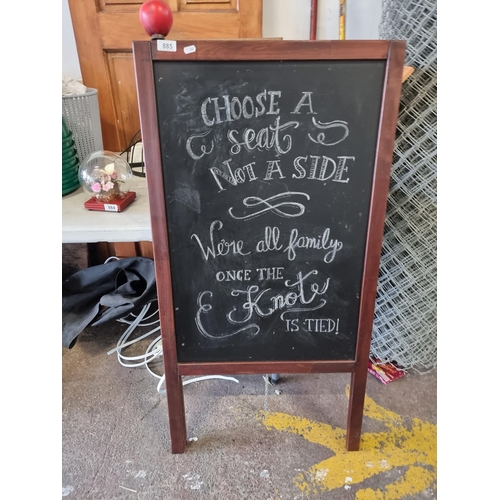 885
CHOOSE A
seat
NOT A SIDE
We're all family
ONCE THE
Knot
IS TIED!
884